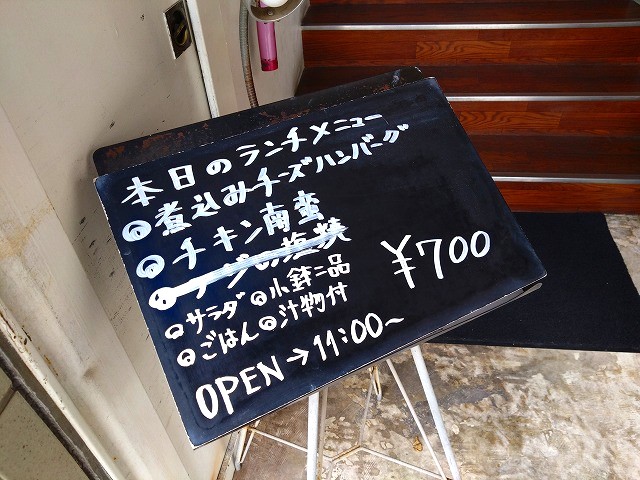 本日のランチメニュー
◎煮込みチーズハンバーグ
◎チキン南蛮
◎アジの塩焼
◎サラダ◎小鉢二品
◎ごはん◎汁物付
¥700
OPEN→11:00~